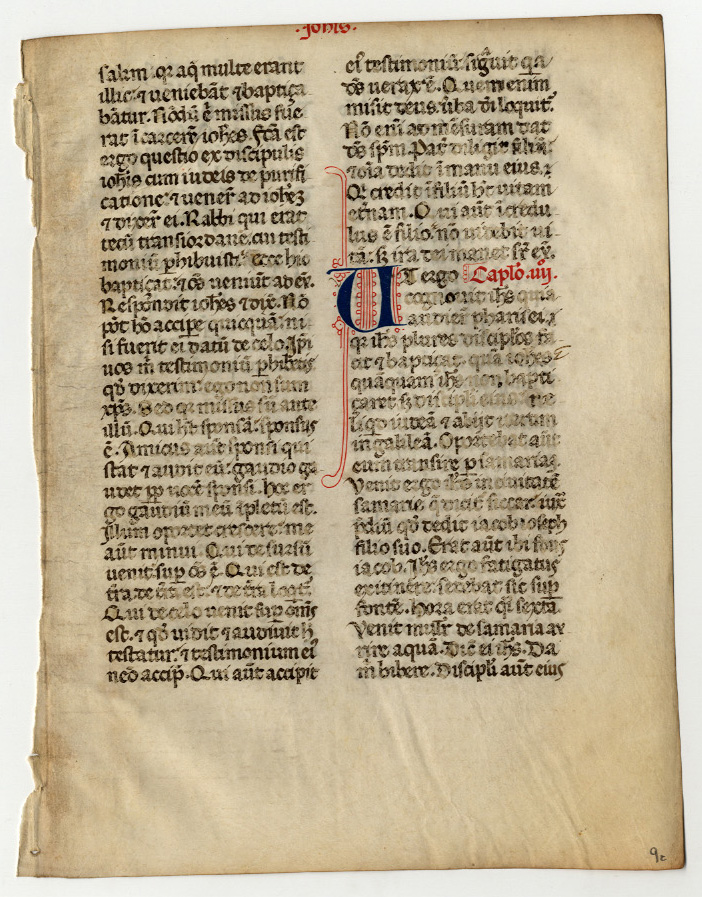 ·Johis·
salim qr aq̄ multe erant
illic ⁊ veniebāt ⁊ baptiça
bātur. Nōdū ē missus fūe
rat ī carcerē iohēs. Fc̄a est
ergo questio ex discipulis
ioh̄is cum iudeis de purifi
catione. ⁊ uener̄ ad iohēȝ
⁊ dixer̄ ei. Rabbi qui erat
tecū transiordanē. cui testi
moniū phibuisti. ecce hic
baptiçat. ⁊ oēs veniūt ad eū.
Respōdit iohēs ⁊ dix̄. Nō
pōt hō accipe quicquā. ni
si fuerit ei datū de celo. Ip̄i
uos m̄ testimoniū phibetis
qd̄ dixerim. ego non sum
xp̄s. sed qr missus sū ante
illū. Qui h̄t sponsā. sponsus
ē. Amicus aūt sponsi qui
stat ⁊ audit eū. gaudio ga
udet pp̄ uocē sponsi. hoc er
go gaudiū meū ī pletū est.
Illum oportet crescere. me
aūt minui. Qui desursū
uenit. sup oēs ē. Qui est de
t̄ra. de t̄ra est. ⁊ de t̄ra loqt̄.
Qui de celo uenit sup om̄s
est. ⁊ qd̄ uidit ⁊ audiuit h̄
testatur. ⁊ testimonium eī
nēo accip̄. Qui aūt accipit
eī testimoniū. signuit qa
dēs uerax ē. Quem enim
misit deus. ūba dī loquit̄.
Nō enī ad mēsuram dat
dēs sp̄m. Pat̄ diligit filiū.
⁊ oīa dedit ī manu eius. ⁊
Qr credit ī filiū h̄t uitam
et̄nam. Qui aūt īcredu
lus ē filio. nō uidebit ui
tā. sȝ ira dei manet sr̄ eū.
Ut ergo Caplo. iiij.
cognouit ih̄s quia
audier̄ pharisei. ⁊
qr ih̄s plures discipłos fa
cit ⁊ baptiçat. quā iohēs
quāquam ih̄s non bapti
çaret sȝ discipli eius. re
liqt iudeā ⁊ abijt iterum
in galileā. Oportebat aūt
eum transire p samariaȝ.
Venit ergo ih̄s in ciuitatē
samarie. q̄ dicit̄ siccar. iux̄
p̄diū qd̄ dedit iacob ioseph
filio suo. Erat aūt ibi fons
iacob. Ih̄s ergo fatigatus
ex itinere. sedebat sic sup
fontē. hora erat qī sexta.
Venit mulr̄ de samaria au
rire aquā. Dic̄ ei ih̄s. Da
m̄ bibere. Discipłi aūt eius